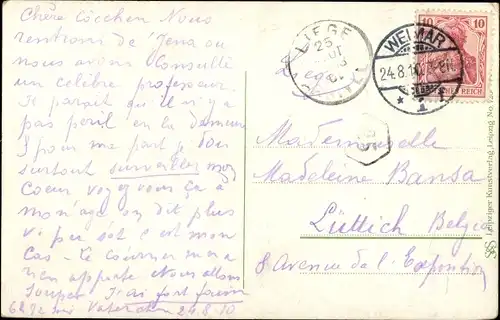 Chère Cocchen Nous
rentrons de Jena où
nous avons consulté
un célèbre professeur.
Il parait qu'il n'y a
pas péril en la demeure
pour ma part je dois
surtout surveiller mon
coeur voyez vous ça à
mon age on dit plus
mon
cas - Le courrier m'en a
rien apporté Nous allons
souper J'ai fort faim
24.8.10
LIEGE
25
WEIMAR
24.8.10
* 1
10
10
Mademoiselle
Madeleine Bansa
Lüttich Belgien
8 Avenue de l'Exposition
Leipziger Kunstverlag, Leipzig, No.